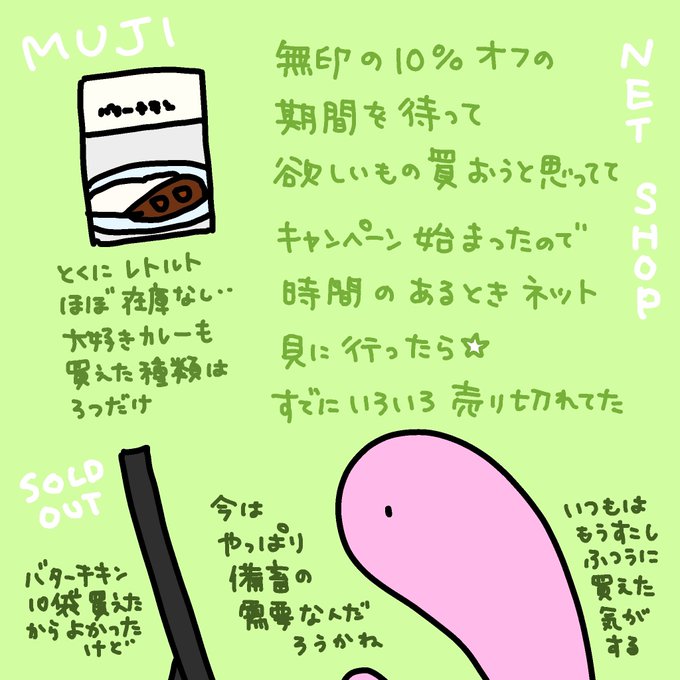 MUJI
無印の10%オフの
期間を待って
欲しいもの買おうと思ってて
キャンペーン始まったので
時間のあるときネット
見に行ったら☆
すでにいろいろ売り切れてた
NET SHOP
バターチキン
とくにレトルト
ほぼ在庫なし‥
大好きカレーも
買えた種類は
3つだけ
SOLD
OUT
バターチキン
10袋買えた
からよかった
けど
今は
やっぱり
備蓄の
需要なんだ
ろうかね
いつもは
もうすこし
ふつうに
買えた
気が
する